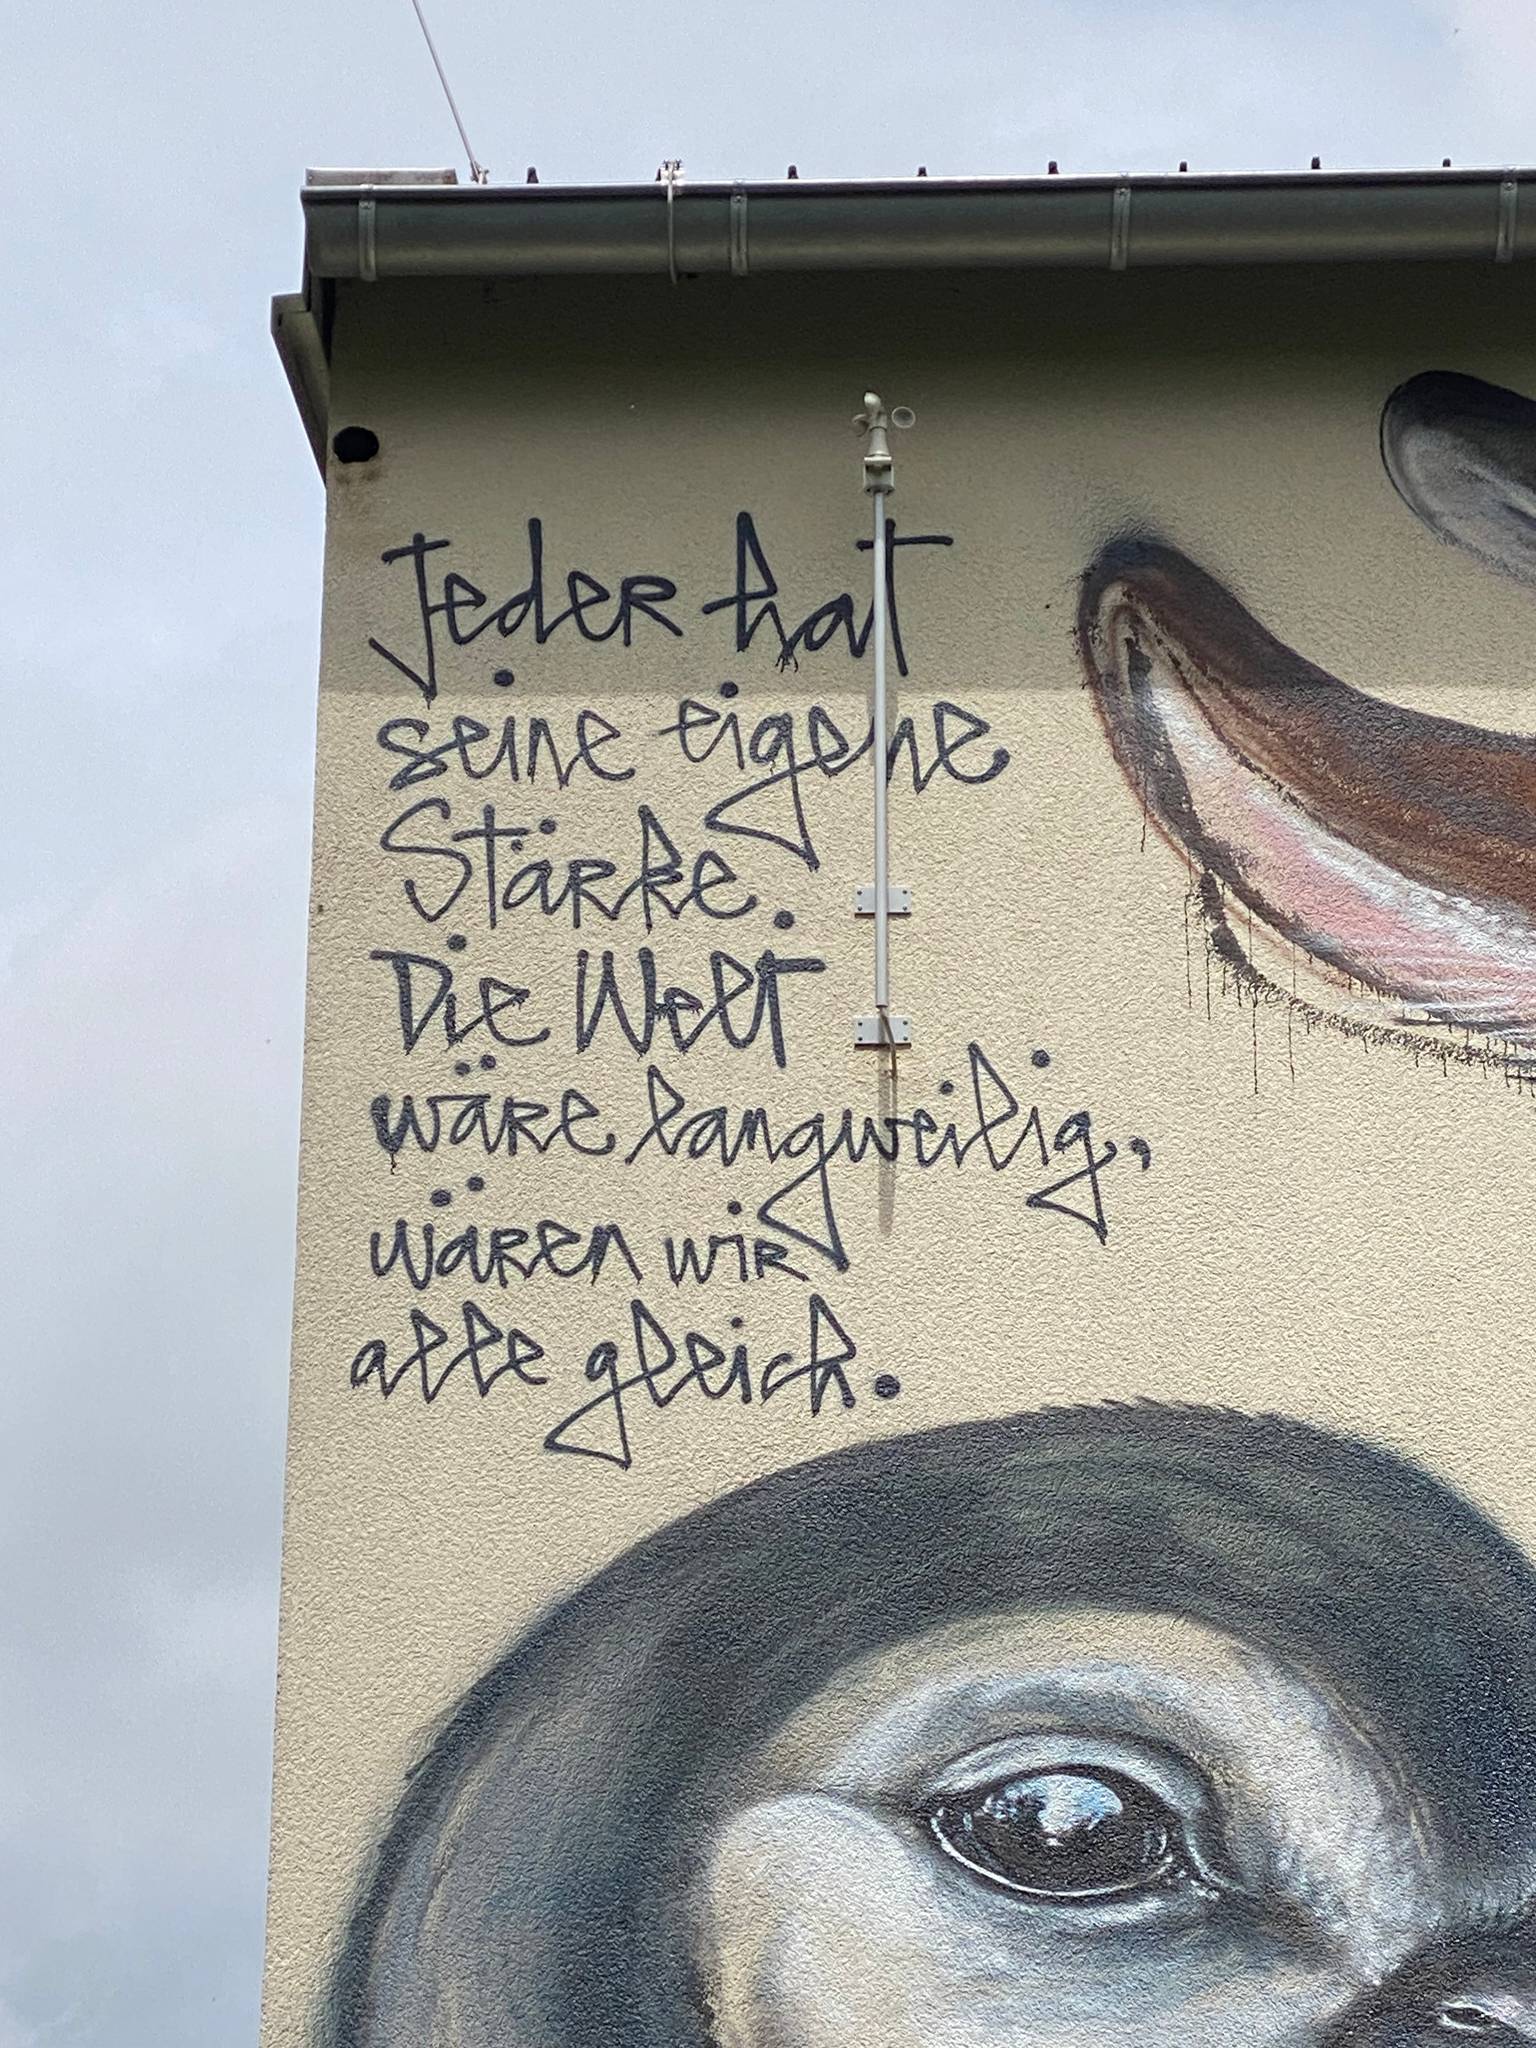 Jeder hat
seine eigene
Stärke.
Die Welt
wäre langweilig,
wären wir
alle gleich.